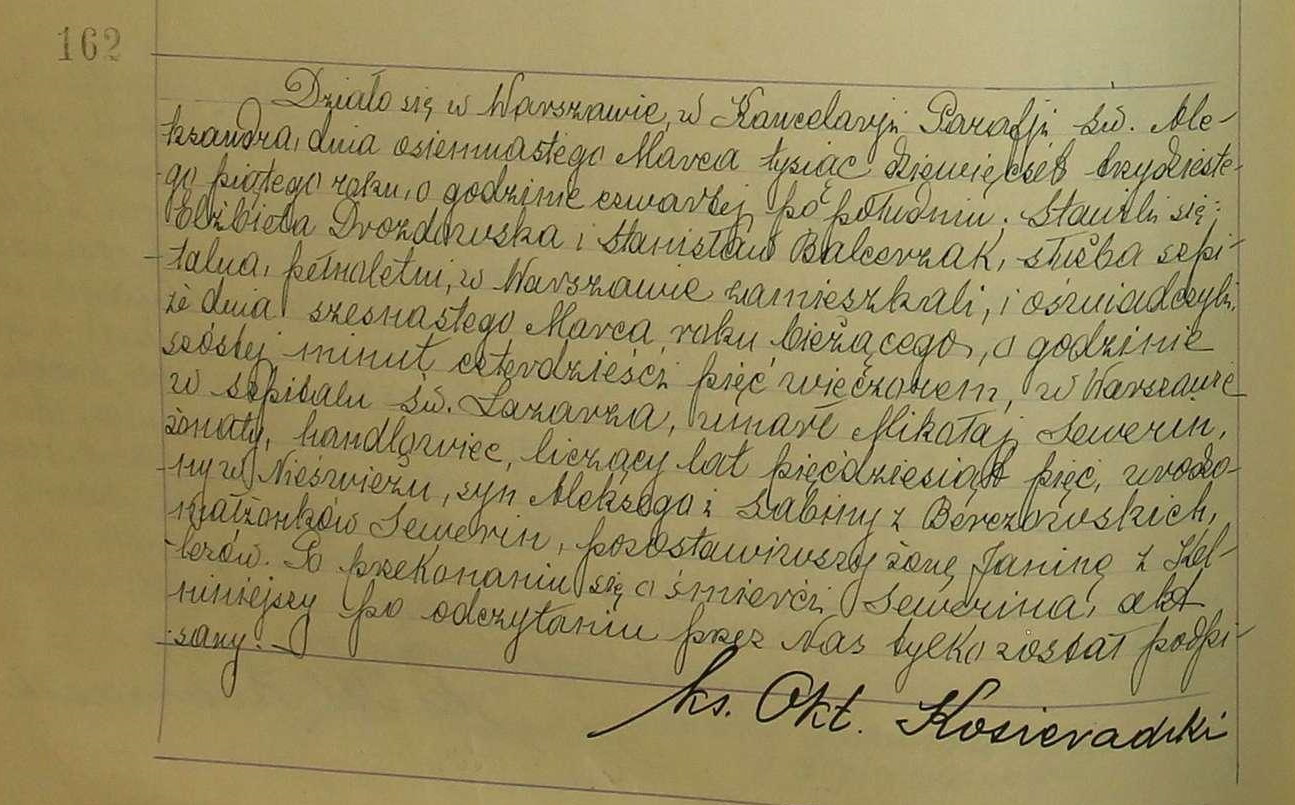 162
Działo się w Warszawie, w Kancelarji Parafji św. Ale-
ksandra, dnia osiemnastego Marca tysiąc dziewięćset trzydzieste-
go piątego roku, o godzinie czwartej po południu; stawili się:
Elżbieta Drozdowska i Stanisław Balcerzak, służba szpi-
talna, pełnoletni, w Warszawie zamieszkali, i oświadczyli,
że dnia szesnastego Marca, roku bieżącego, o godzinie
szóstej minut czterdzieści pięć wieczorem, w Warszawie
w szpitalu św. Łazarza, umarł Mikołaj Sewerin,
żonaty, handlowiec, liczący lat pięćdziesiąt pięć, urodzo-
ny w Nieświeżu, syn Aleksego i Sabiny z Berezowskich,
małżonków Sewerin, pozostawiwszy żonę Janinę z Kel-
lerów. Po przekonaniu się o śmierci Sewerina, akt
niniejszy po odczytaniu przez Nas tylko został podpi-
sany.
ks. Okt. Kosieradzki